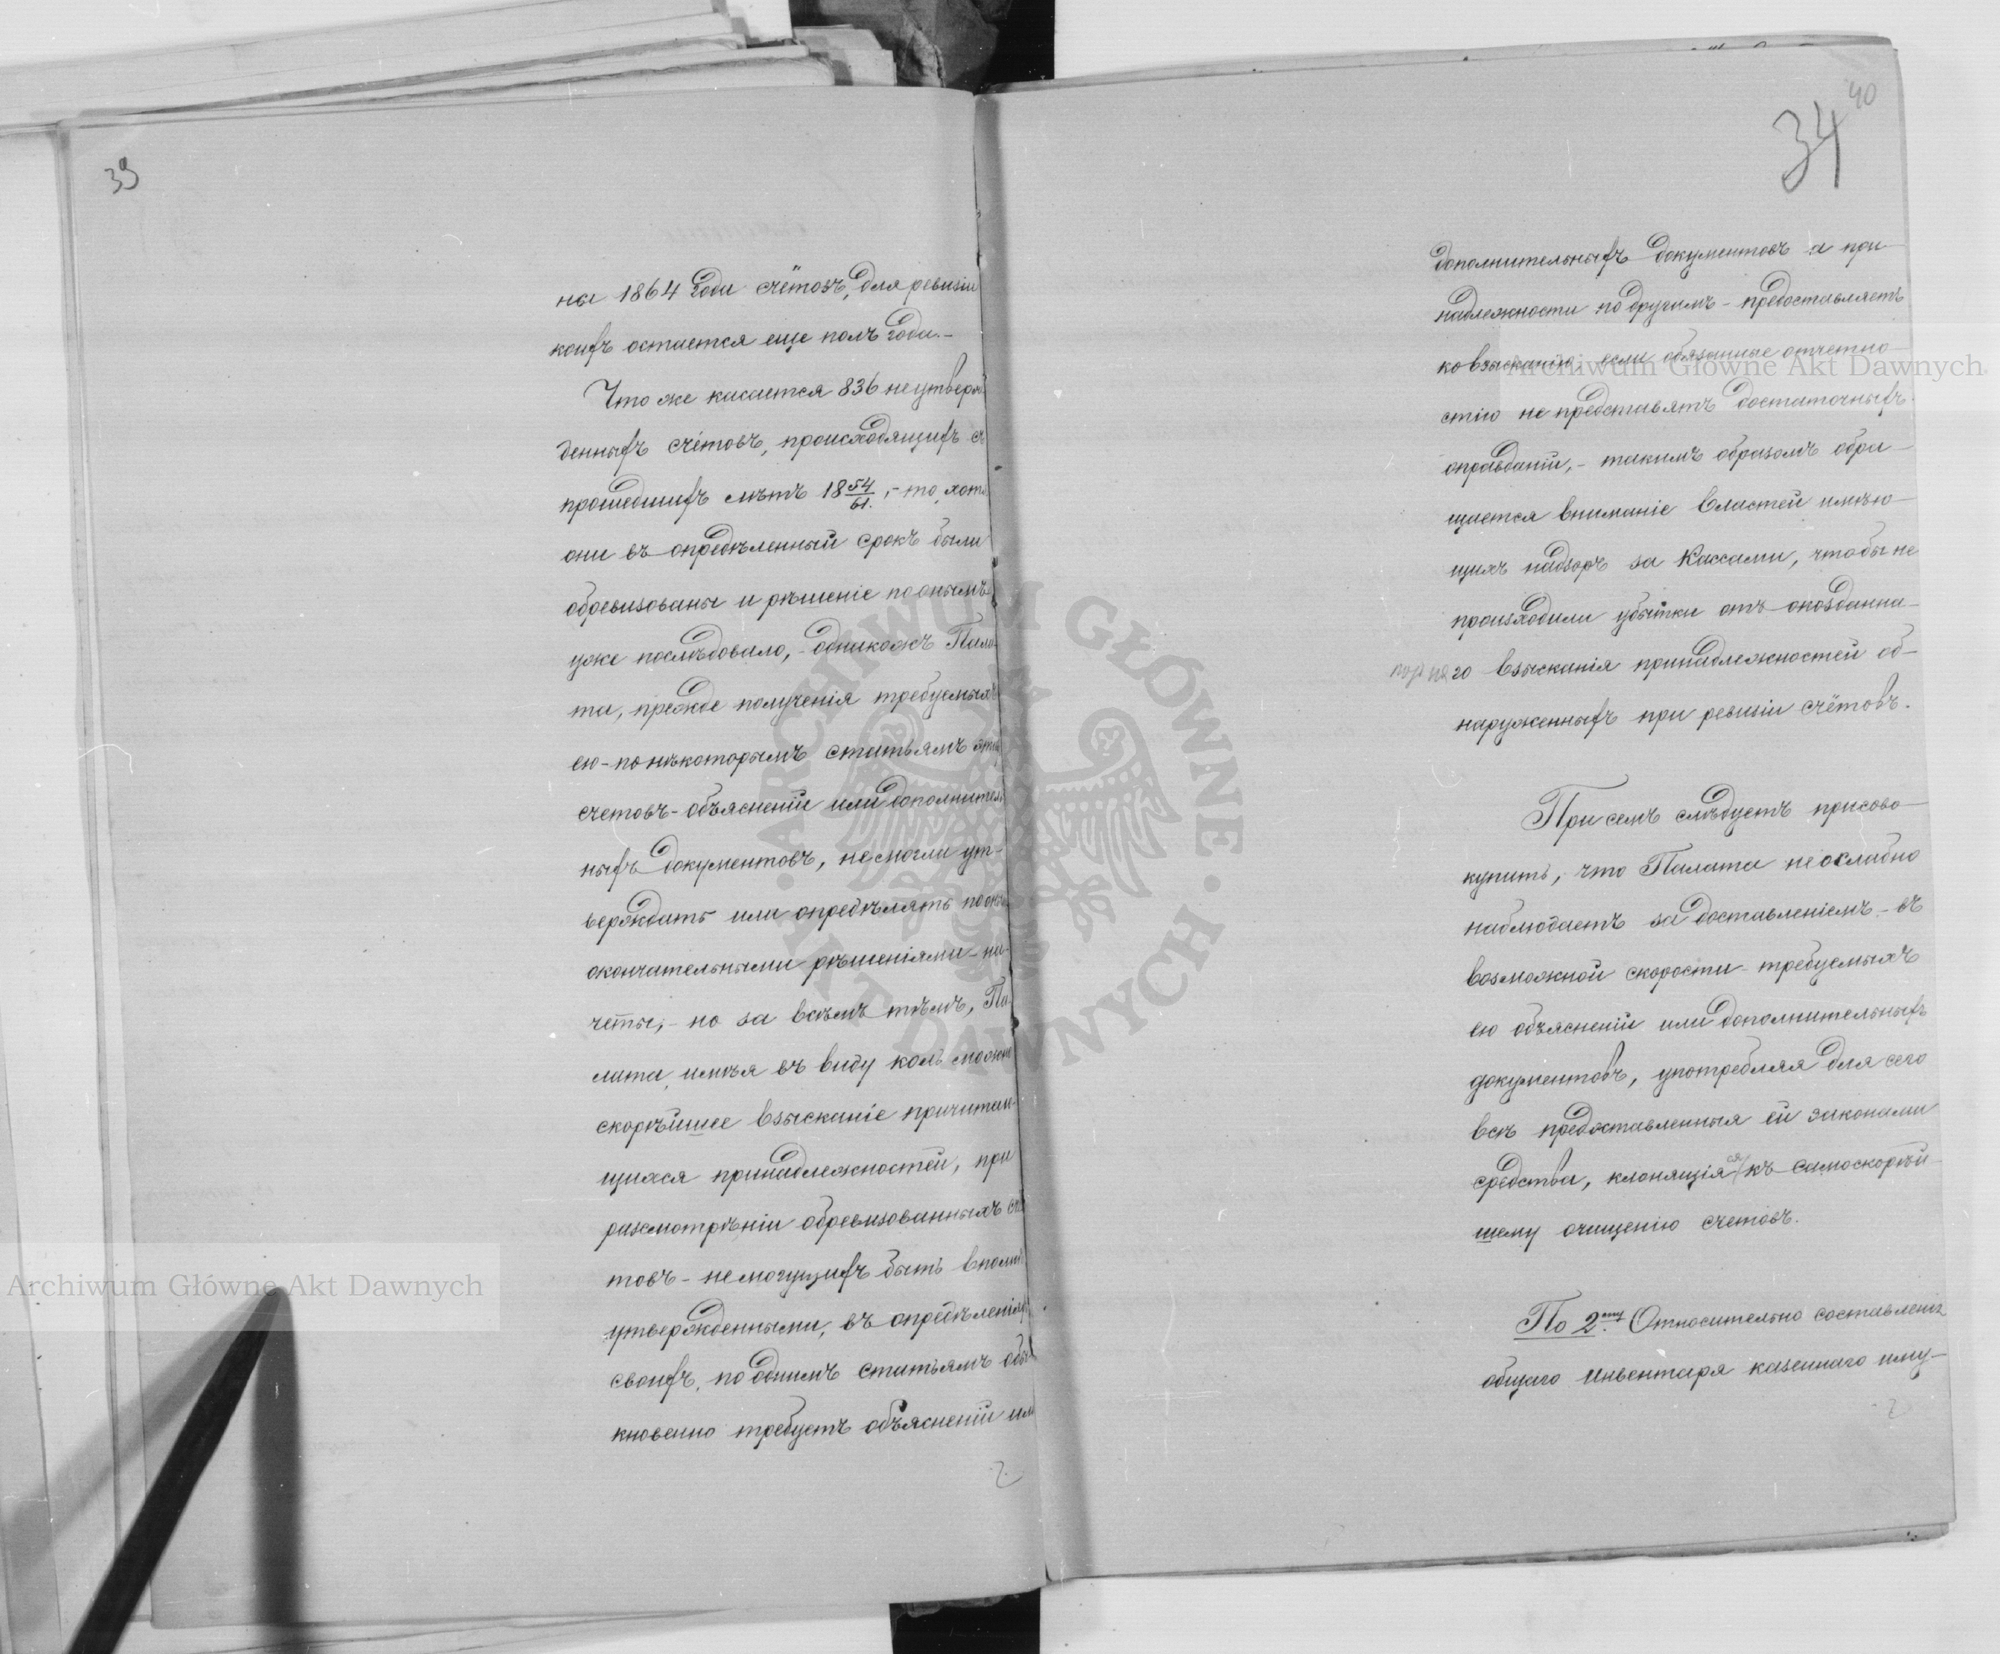 39
на 1864 года счётовъ, для ревизіи
коихъ остается еще полъ года.–
Что же касается 836 неутверж
денныхъ счётовъ, происходящихъ съ
прошедшихъ лѣтъ 18 54/61. – то, хотя
они въ опредѣленный срокъ были
обревизованы и рѣшеніе по онымъ
уже послѣдовало, – однакожъ Пала-
та, прежде полученія требуемыхъ
ею – по нѣкоторымъ статьямъ
счетовъ – объясненій или дополнитель
ныхъ документовъ, не могли ут-
верждать или опредѣлять по
окончательными рѣшеніями – на-
четы, – но за всѣмъ тѣмъ, Па-
лата, имѣя въ виду коль можно
скорѣйшее взысканіе причитаю-
щихся принадлежностей, при
разсмотрѣніи обревизованныхъ счё
товъ – не могущихъ быть вполнѣ
утвержденными, въ опредѣленіяхъ
своихъ, по однимъ статьямъ обы
кновенно требуетъ объясненій или
40
34
дополнительныхъ документовъ а при-
надлежности по другимъ – предоставляетъ
ко взысканію, если обязанные отчетно-
стію не представятъ достаточныхъ
оправданій, – такимъ образомъ обра-
щается вниманіе властей имѣю-
щихъ надзоръ за Кассами, чтобы не
происходили убытки отъ опоздонна-
го взысканія принадлежностей об-
наруженныхъ при ревизіи счётовъ.
При семъ слѣдуетъ присово-
купить, что Палата неослабно
наблюдаетъ за доставленіемъ – въ
возможной скорости – требуемыхъ
ею объясненій или дополнительныхъ
документовъ, употребляя для сего
всѣ предоставленныя ей законами
средства, клонящіяся къ самоскорѣй-
шему очищенію счетовъ.
По 2му. Относительно составленія
общаго инвентаря казеннаго иму-
Archiwum Główne Akt Dawnych
Archiwum Główne Akt Dawnych
· ARCHIWUM GŁÓWNE · AKT DAWNYCH